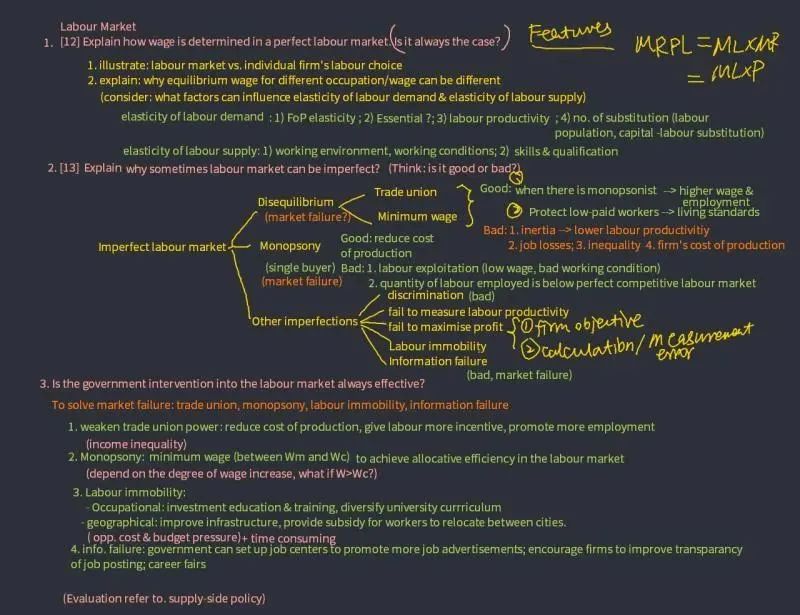 Labour Market
1. [12] Explain how wage is determined in a perfect labour market. (Is it always the case?)
Features
MRPL = ML x MR
= ML x P
1. illustrate: labour market vs. individual firm's labour choice
2. explain: why equilibrium wage for different occupation/wage can be different
(consider: what factors can influence elasticity of labour demand & elasticity of labour supply)
elasticity of labour demand : 1) FoP elasticity ; 2) Essential ?; 3) labour productivity ; 4) no. of substitution (labour
population, capital -labour substitution)
elasticity of labour supply: 1) working environment, working conditions; 2) skills & qualification
2. [13] Explain why sometimes labour market can be imperfect? (Think: is it good or bad?)
Imperfect labour market
Disequilibrium
(market failure?)
Trade union
Minimum wage
Good: ① when there is monopsonist --> higher wage &
employment
② Protect low-paid workers --> living standards
Bad: 1. inertia --> lower labour productivitiy
2. job losses; 3. inequality 4. firm's cost of production
Monopsony
(single buyer)
(market failure)
Good: reduce cost
of production
Bad: 1. labour exploitation (low wage, bad working condition)
2. quantity of labour employed is below perfect competitive labour market
Other imperfections
discrimination (bad)
fail to measure labour productivity
fail to maximise profit
① firm objective
② calculation / measurement
error
Labour immobility
Information failure
(bad, market failure)
3. Is the government intervention into the labour market always effective?
To solve market failure: trade union, monopsony, labour immobility, information failure
1. weaken trade union power: reduce cost of production, give labour more incentive, promote more employment
(income inequality)
2. Monopsony: minimum wage (between Wm and Wc) to achieve allocative efficiency in the labour market
(depend on the degree of wage increase, what if W>Wc?)
3. Labour immobility:
- Occupational: investment education & training, diversify university currriculum
- geographical: improve infrastructure, provide subsidy for workers to relocate between cities.
( opp. cost & budget pressure)+ time consuming
4. info. failure: government can set up job centers to promote more job advertisements; encourage firms to improve transparany
of job posting; career fairs
(Evaluation refer to. supply-side policy)